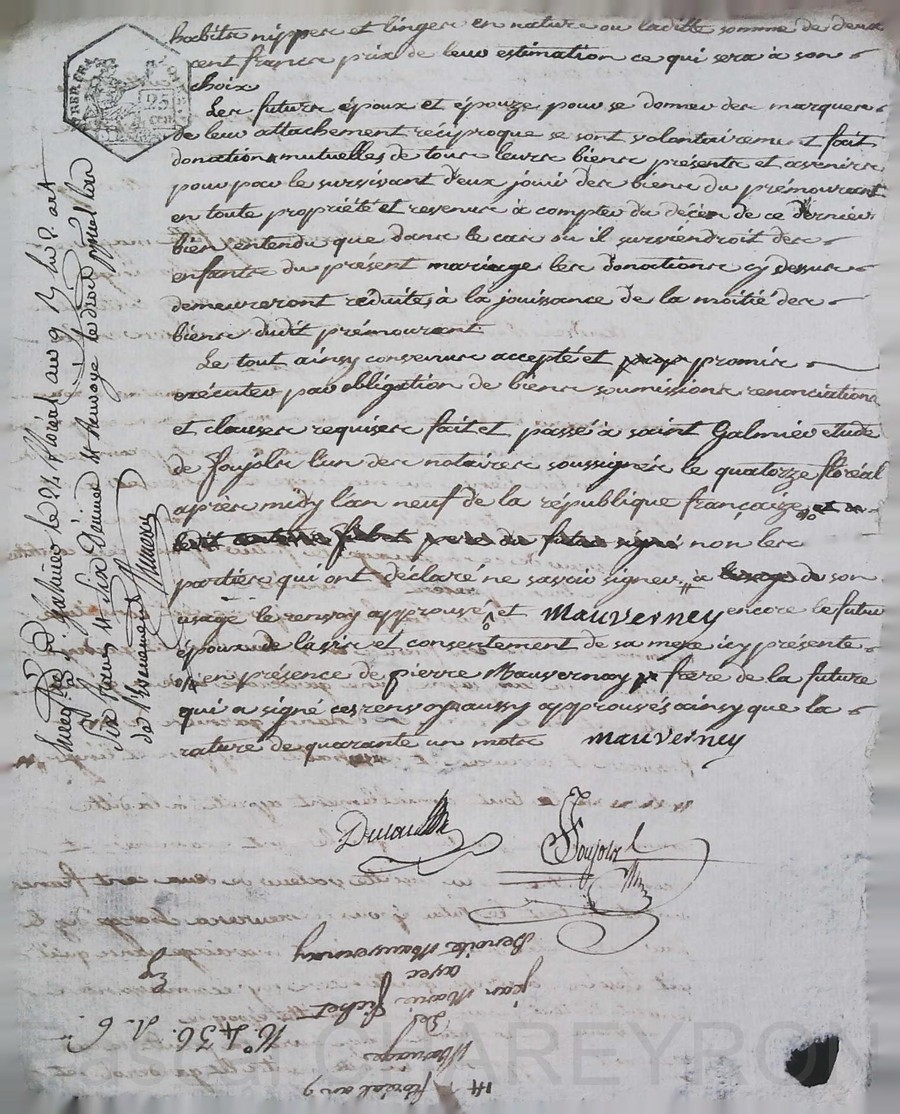 habits nippes et linges en nature ou laditte somme de deux
cent francs prix de leur estimation ce qui sera à son
choix
Les futurs époux et épouze pour se donner des marques
de leur attachement réciproque se sont volontairement fait
donations mutuelles de tous leurs biens présents et avenirs
pour par le survivant d'eux jouir des biens du prémourant
en toute propriété et revenus à compter du décès de ce dernier
bien entendu que dans le cas ou il surviendroit des
enfants du présent mariage les donations cy dessus
demeureront réduites à la jouissance de la moitié des
biens dudit prémourant.
Le tout ainsy convenu accepté et promis
exécuter par obligation de biens soumissions renonciations
et clauses requises fait et passé à saint Galmier etude
de Joujols l'un des notaires soussignés le quatorze floréal
après midy l'an neuf de la république françaize
non les
partiés qui ont déclaré ne savoir signer à son
usage le renvoy approuvé et Mauverney encore le futur
époux de l'avis et consentement de sa mere icy présente
en présence de pierre Mauvernay frere de la future
qui a signé ces renvoys aussy approuvés ainsy que la
rature de quarante un mots Mauverney
Joujols
14 floréal an 9
Mariage
De
jean Marie Fichet
avec
Benoite Mauvernay
N° 436
CHAREYRON